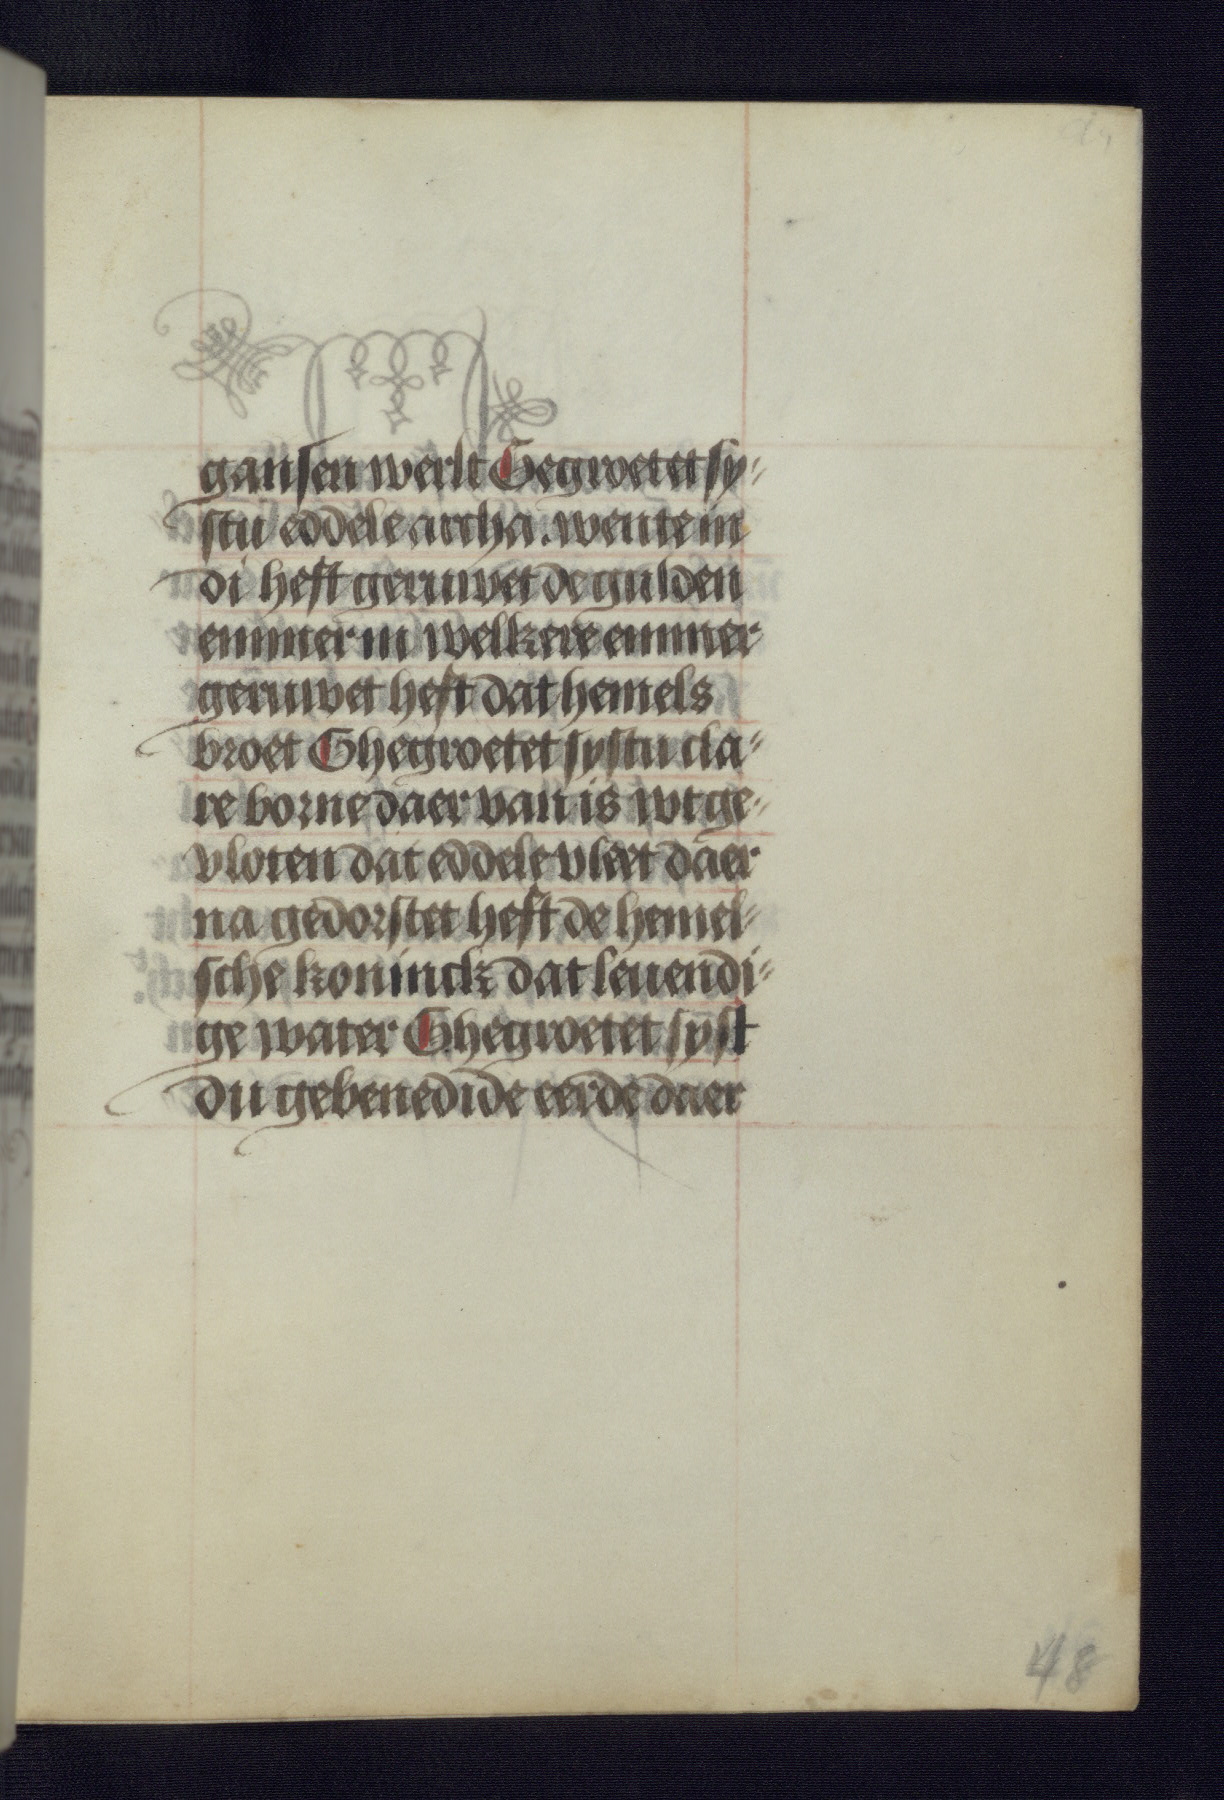 gansen werlt Gegroetet sy-
stu eddele archa. wente in
di heft geruwet de gulden
emmer in welkere emmer
geruwet heft dat hemels
broet Ghegroetet systu cla-
re borne daer van is wtge-
vloten dat eddele vleet daer
na gedorstet heft de hemel-
sche koninck dat leuendi-
ge water Ghegroetet syst
du gebenedide eerde daer
48